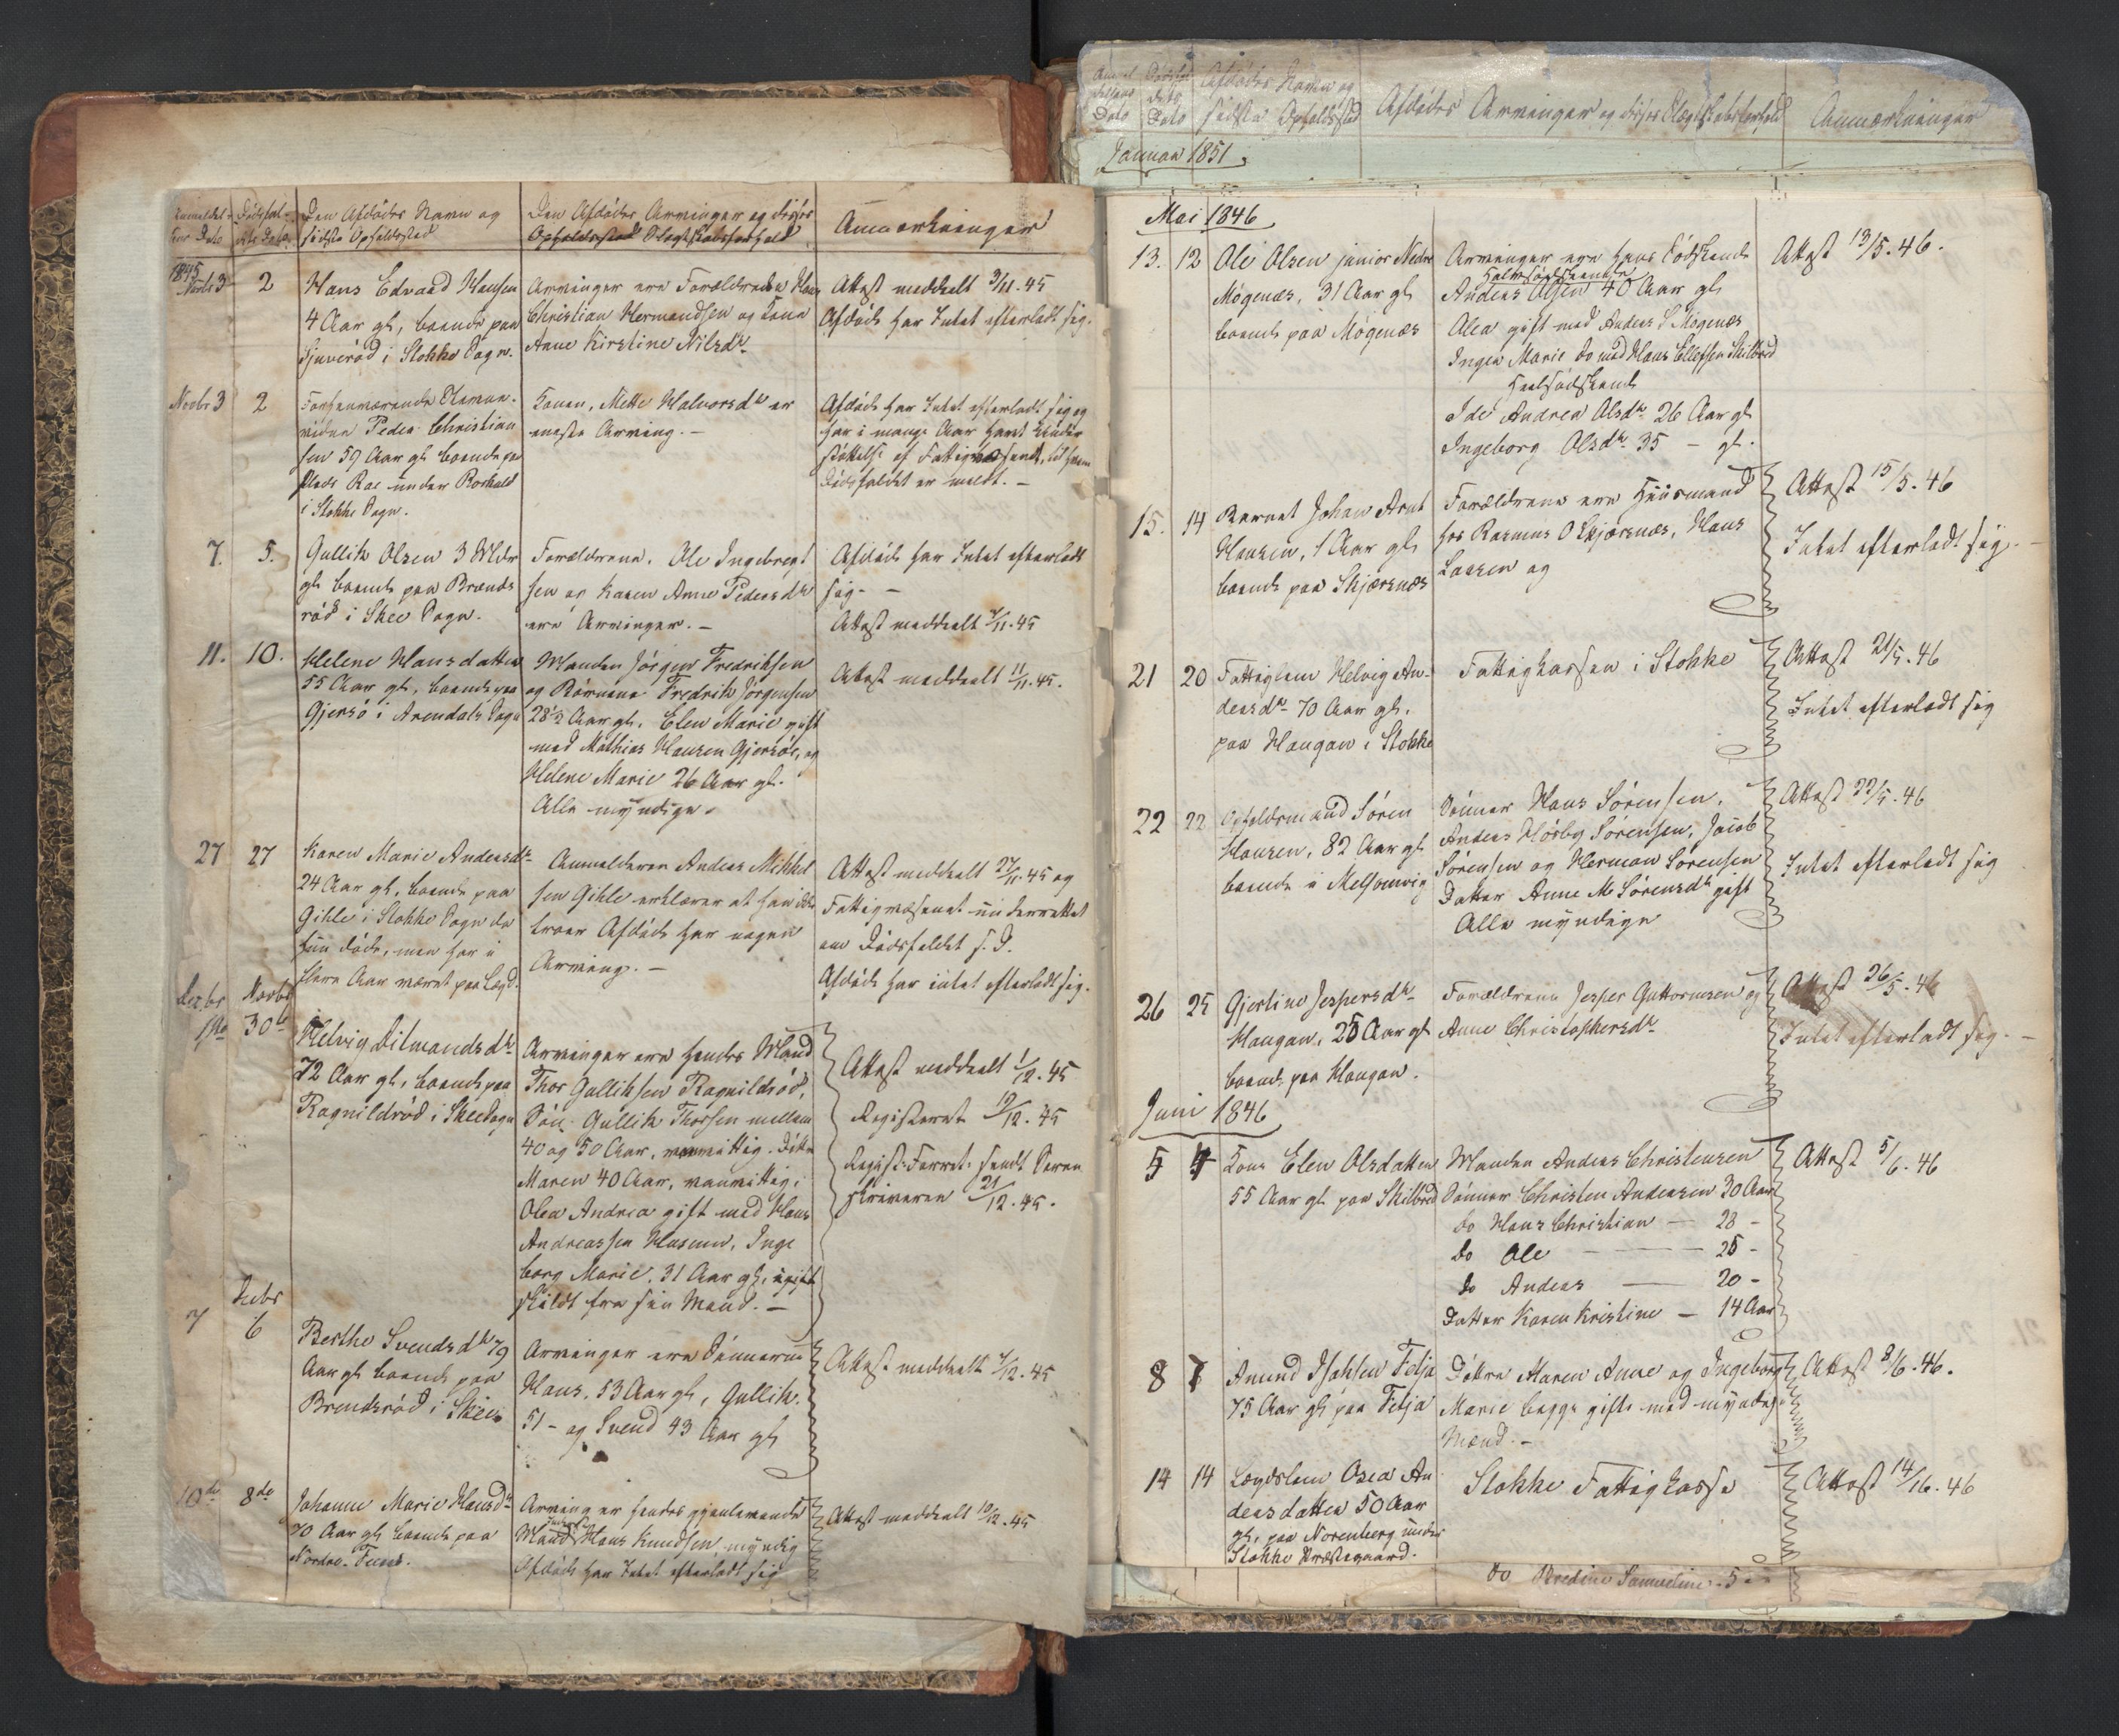 Anmeldel-
sens Dato
Dødsfal-
dets Dato
Den Afdødes Navn og
sidste Opholdssted
Den Afdødes Arvinger og disses
Opholdssted Slægtskabsforhold
Anmærkninger
1845
Novbr 3
2
Hans Edvard Hansen
4 Aar gl, boende paa
i Stokke Sogn.
Arvinger ere Forældrene Hans
Christian Hermandsen og Kone
Anne Kirstine Nilsdr
Attest meddeelt 3/11.45
Afdøde har Intet efterladt sig.
Novbr 3
2
Forhenværende
Peder Christian
sen 59 Aar gl boende paa
Plads Rae under Borhald
i Stokke Sogn.
Konen, Mette Halvorsdr er
eneste Arving. -
Afdøde har Intet efterladt sig og
har i mange Aar havt Under
støttelse af Fattigvæsenet, til hvem
Dødsfaldet er meldt. -
7.
5.
Gullik Olsen 3 Uger
gl boende paa Brænds
rød i Skee Sogn.
Forældrene, Ole Ingebregt
sen og Karen Anne Pedersdr
ere Arvinger. -
Afdøde har Intet efterladt
sig. -
Attest meddeelt 7/11.45
11.
10.
Helene Hansdatter
55 Aar gl, boende paa
Gjersø i Arendals Sogn
Manden Jørgen Fredriksen
og Børnene Fredrik Jørgensen
28 1/2 Aar gl, Elen Marie gift
med Mathias Hansen Gjersøe, og
Helene Marie 26 Aar gl.
Alle myndige.
Attest meddeelt 11/11.45.
27
27
Karen Marie Andersdr
24 Aar gl, boende paa
Gihle i Stokke Sogn da
hun døde, men har i
flere Aar været paa Lægd.
Anmelderen Anders Mikkel
sen Gihle erklærer at han ikke
troer Afdøde har nogen
Arving. -
Attest meddeelt 27/11.45 og
Fattigvæsenet underrettet
om Dødsfaldet s. D.
Afdøde har intet efterladt sig.
Dezbr
1ste
Novbr
30te
Helvig Ditmandsdr
72 Aar gl, boende paa
Ragnildrød i Skee Sogn
Arvinger ere hendes Mand
Thor Gulliksen Ragnildrød,
Søn Gullik Thorsen mellem
40 og 50 Aar, vanvittig. Datter
Maren 40 Aar, vanvittig,
Olea Andrea gift med Hans
Andreassen Husum, Inge
borg Marie, 31 Aar gl, ugift
skildt fra sin Mand. -
Attest meddeelt 1/12.45
Registeret 19/12.45
Regist: Forret: sendt Soren
skriveren 21/12.45.
7
Debr
6
Berthe Svendsdr 79
Aar gl boende paa
Brendsrød i Skee
Arvinger ere Sønnerne
Hans, 53 Aar gl, Gullik
51 - og Svend 43 Aar gl
Attest meddeelt 7/12.45
10de
8de
Johanne Marie Hansdr
70 Aar gl boende paa
Nordre Feen.
Arving er hendes gjenlevende
Mand Hans Knudsen, myndig
Afdøde har Intet efterladt sig
Attest meddeelt 10/12.45
Dato
Dato
Afdødes Navn og
sidste Opholdssted
Afdødes Arvinger og disses Slægtskabsforhold
Anmærkninger
Januar 1851.
Mai 1846
13.
12
Ole Olsen junior Nedre
Møgenæs, 31 Aar gl
boende paa Møgenæs
Arvinger ere hans Sødskende
Halvsødskende
Anders Olsen 40 Aar gl
Olea gift med Anders S Møgenæs
Inger Marie do med Hans Ellefsen Skilbred
Heelsødskende
Ide Andrea Olsdr 26 Aar gl
Ingeborg Olsdr 35 - gl.
Attest 13/5.46.
15.
14
Barnet Johan Arnt
Hansen, 1 Aar gl
boende paa Skjærsnæs
Forældrene ere Huusmand
hos Rasmus O Skjærsnæs, Hans
Larsen og
Attest 15/5.46
Intet efterladt sig. -
21
20
Fattiglem Helvig An-
dersdr 70 Aar gl.
paa Haugan i Stokke
Fattigkassen i Stokke
Attest 21/5.46
Intet efterladt sig
22
22
Opholdsmand Søren
Hansen, 82 Aar gl
boende i Melsomvig
Sønner Hans Sørensen,
Anders Hørby Sørensen, Jacob
Sørensen og Herman Sørensen
Datter Anne M Sørensdr gift
Alle myndige
Attest 22/5.46
Intet efterladt sig
26
25
Gjertine Jespersdr
Haugan, 25 Aar gl
boende paa Haugan.
Forældrene Jesper Guttormsen og
Anne Christophersdr
Attest 26/5.46
Intet efterladt sig. -
Juni 1846
5
4
Kone Elen Olsdatter
55 Aar gl paa Skilbred
Manden Anders Christensen
Sønner Christen Andersen 30 Aar
do Hans Christian - 28 -
do Ole - 25 -
do Anders - 20 -
Datter Karen Kristine - 14 Aar
Attest 5/6.46
8
7
Amund Isaksen Felja
75 Aar gl paa Felja
Døttre Maren Anne og Ingeborg
Marie begge gifte med myndige
Mænd. -
Attest 8/6.46.
14
14
Lægdslem Osea An-
dersdatter 50 Aar
gl, paa Norenberg under
Stokke Præstegaard.
Stokke Fattigkasse
Attest 14/6.46
do Bredine Samueline - 5 -